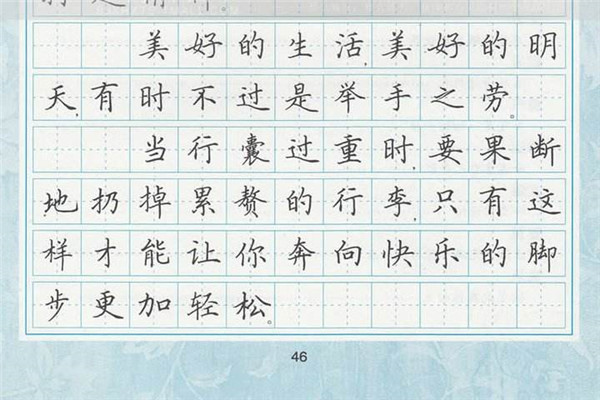 美好的生活,美好的明
天,有时不过是举手之劳。
当行囊过重时,要果断
地扔掉累赘的行李,只有这
样才能让你奔向快乐的脚
步更加轻松。
46